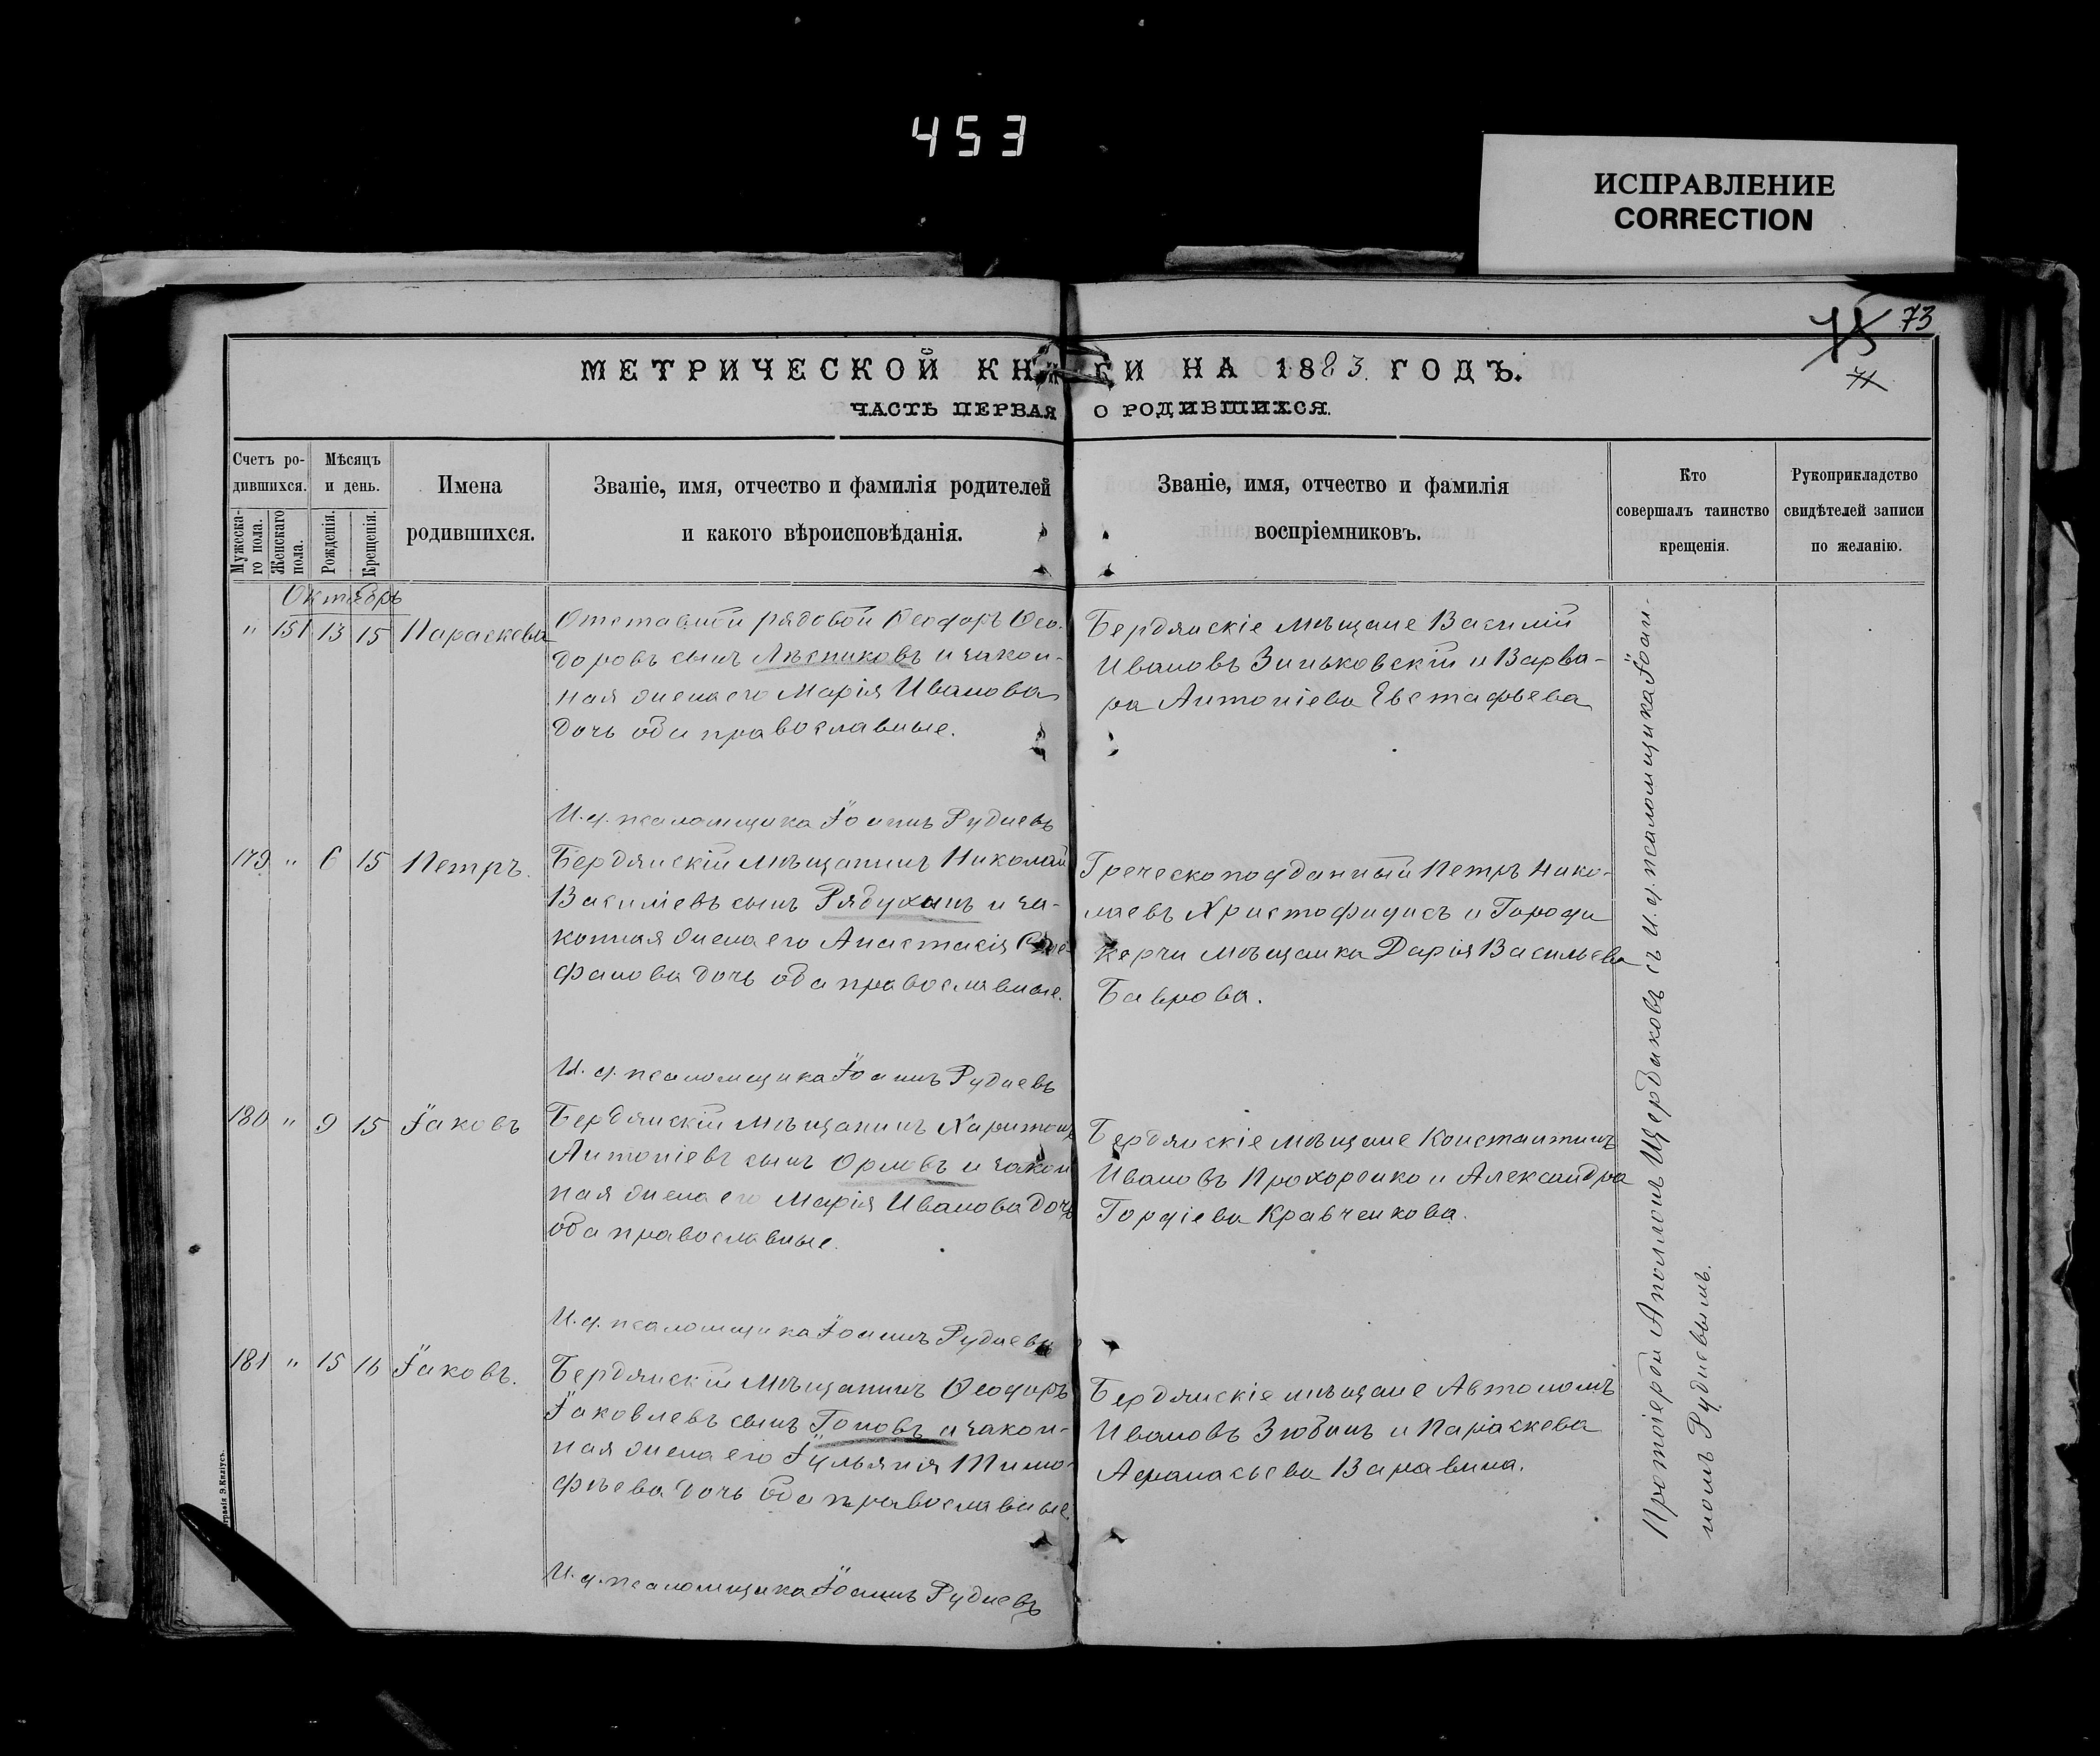 453
ИСПРАВЛЕНИЕ
CORRECTION
75 73
71
МЕТРИЧЕСКОЙ КНИГИ НА 1883 ГОДЪ.
ЧАСТЬ ПЕРВАЯ О РОДИВШИХСЯ.
Счетъ ро-
дившихся.
Мужеска-
го пола.
Женскаго
пола.
Мѣсяцъ
и день.
Рожденія.
Крещенія.
Имена
родившихся.
Званіе, имя, отчество и фамилія родителей
и какого вѣроисповѣданія.
Званіе, имя, отчество и фамилія
воспріемниковъ.
Кто
совершалъ таинство
крещенія.
Рукоприкладство
свидѣтелей записи
по желанію.
Октябрь
" 151 13 15 Параскева
Отставной рядовой Ѳеодоръ Ѳео-
доровъ сынъ Лѣсниковъ и закон-
ная жена его Марія Иванова
дочь оба православные.
И. д. псаломщика Іоаннъ Рудневъ
Бердянскіе мѣщане Василій
Ивановъ Зиньковскій и Варва-
ра Антоніева Евстафьева
179 " 6 15 Петръ.
Бердянскій мѣщанинъ Николай
Василіевъ сынъ Рядухинъ и за-
конная жена его Анастасія
фанова дочь оба православные.
И. д. псаломщика Іоаннъ Рудневъ
Греческоподданный Петръ Нико-
лаевъ Христофидисъ и Города
Керчи мѣщанка Дарія Васильева
Баврова.
180 " 9 15 Іаковъ
Бердянскій мѣщанинъ Харитонъ
Антоніевъ сынъ Орловъ и закон
ная жена его Марія Иванова дочь
оба православные.
И. д. псаломщика Іоаннъ Рудневъ
Бердянскіе мѣщане Константинъ
Ивановъ Прохоренко и Александра
Гордіева Кравченкова.
181 " 15 16 Іаковъ.
Бердянскій мѣщанинъ Ѳеодоръ
Іаковлевъ сынъ Гоповъ и закон-
ная жена его Іульянія Тимо-
фѣева дочь оба православные.
И. д. псаломщика Іоаннъ Рудневъ
Бердянскіе мѣщане Автономъ
Ивановъ Зюбинъ и Параскева
Афанасьева Варавина.
Протоіерей Аполлонъ Щербаковъ съ И. д. псаломщика Іоан-
номъ Рудневымъ.